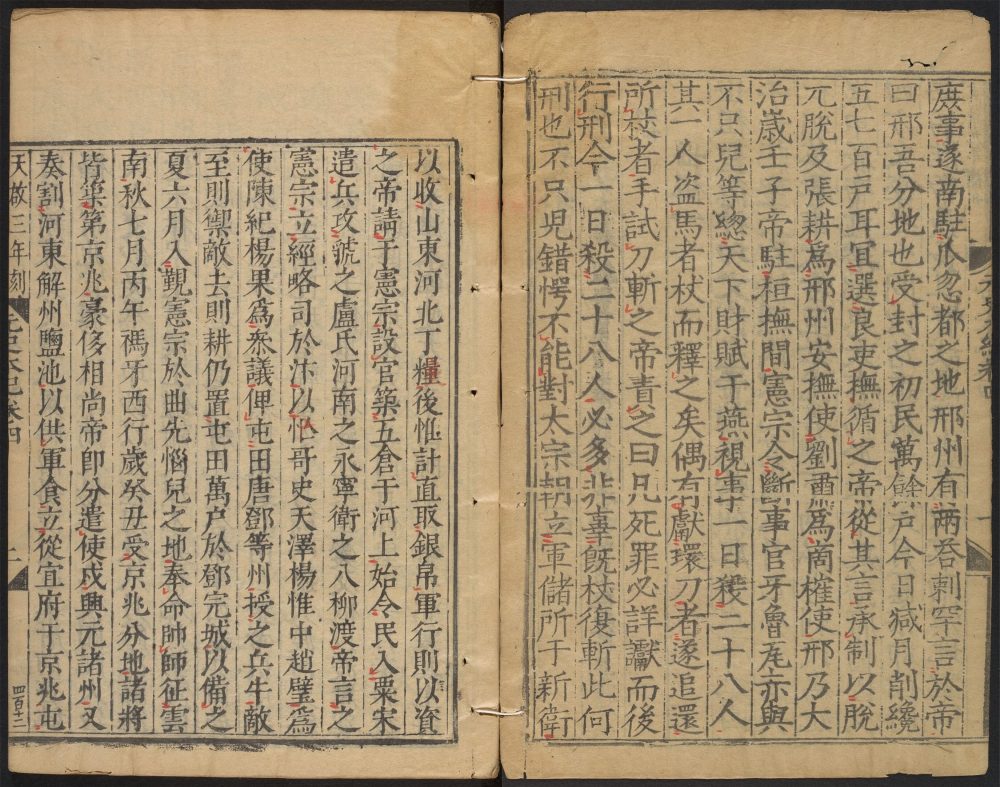 庶事遂南駐爪忽都之地邢州有兩荅剌罕言於帝
曰邢吾分地也受封之初民萬餘戶今日減月削纔
五七百戶耳宜選良吏撫循之帝從其言承制以脫
兀脫及張耕爲邢州安撫使劉肅爲商榷使邢乃大
治歲壬子帝駐桓撫間憲宗令斷事官牙魯瓦赤與
不只兒等緫天下財賦于燕視事一日殺二十八人
其一人盗馬者杖而釋之矣偶有獻環刀者遂追還
所杖者手試刀斬之帝責之曰凡死罪必詳讞而後
行刑今一日殺二十八人必多非辜旣杖復斬此何
刑也不只兒錯愕不能對太宗朝立軍儲所于新衛
以收山東河北丁糧後惟計直取銀帛軍行則以資
之帝請于憲宗設官築五倉于河上始令民入粟宋
遣兵攻虢之盧氏河南之永寧衛之八柳渡帝言之
憲宗立經略司於汴以忙哥史天澤楊惟中趙璧爲
使陳紀楊果爲叅議俾屯田唐鄧等州授之兵牛敵
至則禦敵去則耕仍置屯田萬户於鄧完城以備之
夏六月入覲憲宗於曲先惱兒之地奉命帥師征雲
南秋七月丙午禡牙西行歲癸丑受京兆分地諸將
皆築第京兆豪侈相尚帝卽分遣使戍興元諸州又
奏割河東解州鹽池以供軍食立從宜府于京兆屯
天啟三年刻
元史本紀卷四
四百十二